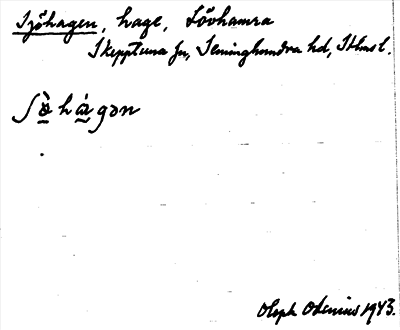 Sjöhagen, hage, Lövhamra
Skepptuna sn, Seminghundra hd, Sthms l.
ʃö̀hágən
Oloph Odenius 1943.